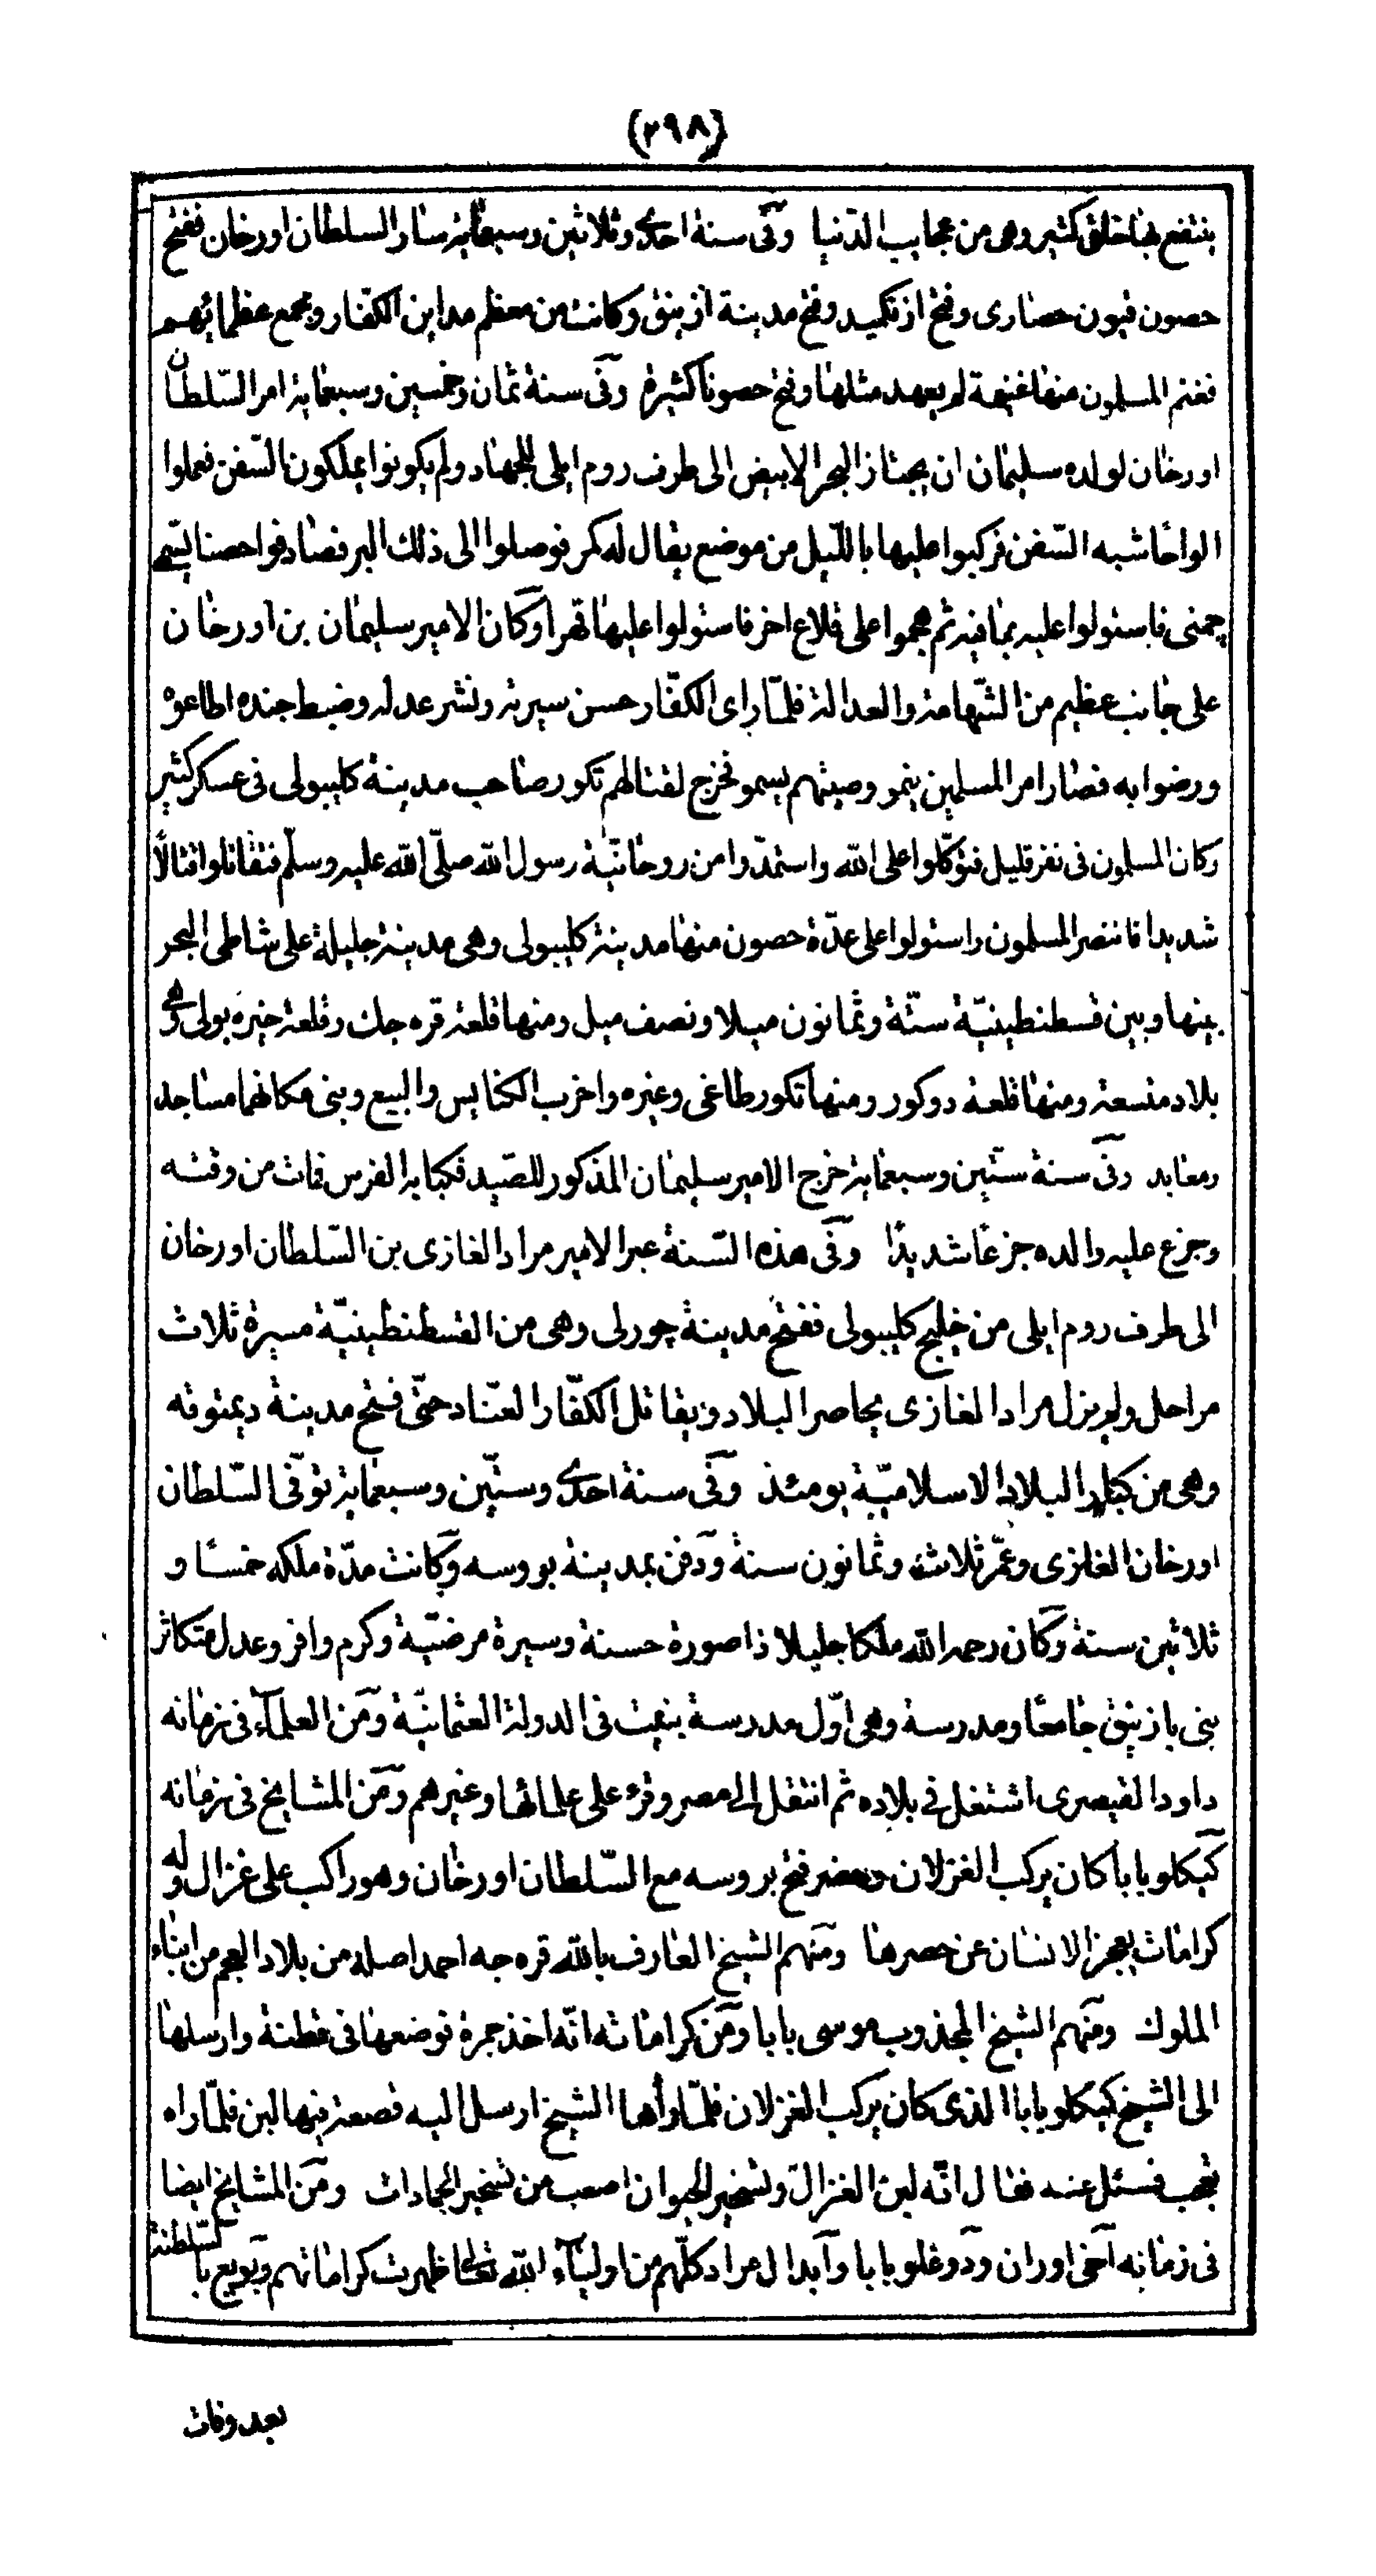 (٢٩٨)
ينتفع بها خلق كثير وهى من عجايب الدّنيا وفى سنة احدى وثلاثين وسبعماية سار السلطان اورخان ففتح
حصون قيون حصارى وفتح ازنكميد وفتح مدينة ازنيق وكانت من معظم مداين الكفّار ومجمع عظمائهم
فغنم المسلمون منها غنيمة لم يعهد مثلها وفتح حصونا كثيرة وفى سنة ثمان وخمسين وسبعماية امر السّلطان
اورخان لولده سليمان ان يجتاز البحر الابيض الى طرف روم ايلى للجهاد ولم يكونوا يملكون السّفن فعملوا
الواحًا شبه السّفن فركبوا عليها باللّيل من موضع يقال له كمر فوصلوا الى ذلك البر فصادفوا حصنا يسمّى
چمنى فاستولوا عليه بما فيه ثم هجموا على قلاع اخر فاستولوا عليها قهرا وكان الامير سليمان بن اورخان
على جانب عظيم من الشّهامة والعدالة فلمّا راى الكفّار حسن سيرته ونشر عدله وضبط جنده اطاعوه
ورضوا به فصار امر المسلمين ينمو وصيتهم يسمو فخرج لقتالهم تكور صاحب مدينة كليبولى فى عسكر كثير
وكان المسلمون فى نفر قليل فتوكّلوا على الله واستمدّوا من روحانيّة رسول الله صلّى الله عليه وسلّم فتقاتلوا قتالًا
شديدا فانتصر المسلمون واستولوا على عدّة حصون منها مدينة كليبولى وهى مدينة جليلة على شاطى البحر
بينها وبين قسطنطينيّة ستّة وثمانون ميلا ونصف ميل ومنها قلعة قره جك وقلعة خيره بولى وهى
بلاد متسعة ومنها قلعة دوكور ومنها تكور طاغى وغيره واخرب الكنايس والبيع وبنى مكانهما مساجد
ومعابد وفى سنة ستّين وسبعماية خرج الامير سليمان المذكور للصّيد فكبا به الفرس فمات من وقته
وجزع عليه والده جزعًا شديدًا وفى هذه السّنة عبر الامير مراد الغازى بن السّلطان اورخان
الى طرف روم ايلى من خليج كليبولى ففتح مدينة چورلى وهى من القسطنطينيّة مسيرة ثلاث
مراحل ولم يزل مراد الغازى يحاصر البلاد ويقاتل الكفّار العتاد حتّى فتح مدينة ديمتوقه
وهى من كبار البلاد الاسلاميّة يومئذ وفى سنة احدى وستّين وسبعماية توفّى السّلطان
اورخان الغازى وعمّر ثلاثة وثمانون سنة ودفن بمدينة بروسه وكانت مدّة ملكه خمسًا و
ثلاثين سنة وكان رحمه الله ملكا جليلا ذا صورة حسنة وسيرة مرضيّة وكرم وافر وعدل متكاثر
بنى بازنيق جامعًا ومدرسة وهى اوّل مدرسة بنيت فى الدولة العثمانيّة ومن العلمآء فى زمانه
داود القيصرى اشتغل فى بلاده ثم انتقل الى مصر وقرء على علمائها وغيرهم ومن المشايخ فى زمانه
كيكلو بابا كان يركب الغزلان وحضر فتح بروسه مع السّلطان اورخان وهو راكب على غزال وله
كرامات يعجز الانسان عن حصرها ومنهم الشيخ العارف بالله قره جه احمد اصله من بلاد العجم من ابناء
الملوك ومنهم الشيخ المجذوب موسى بابا ومن كراماته انّه اخذ جمرة فوضعها فى قطنة وارسلها
الى الشيخ كيكلو بابا الذى كان يركب الغزلان فلمّا رأها الشيخ ارسل اليه قصعة فيها لبن فلمّا راه
تعجب فسئل عنه فقال انّه لبن الغزال وتسخير الحيوان اصعب من تسخير الجمادات ومن المشايخ ايضا
فى زمانه آخى اوران ودوغلو بابا وآبدال مراد كلّهم من اوليآء الله تعالى ظهرت كراماتهم وبويع بالسّلطنة
بعد وفات